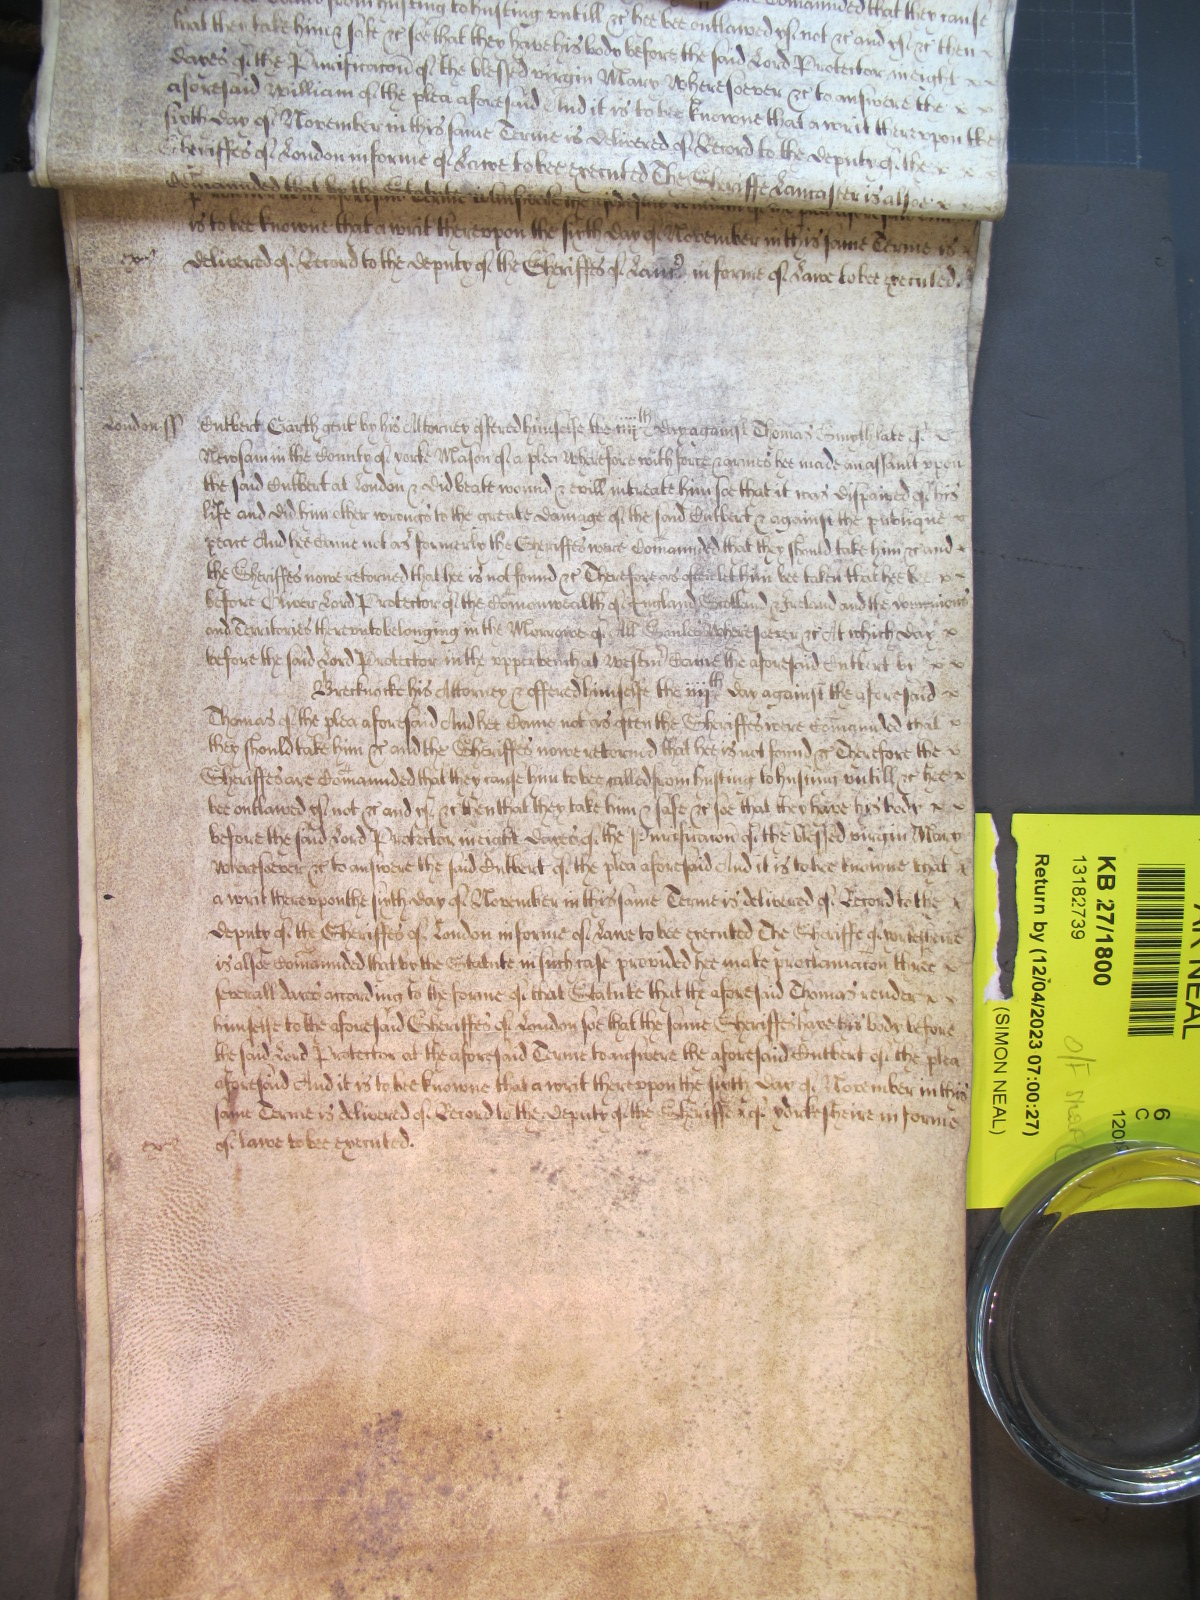 from husting to husting untill &c hee bee outlawed yf not &c and yf &c then
that they take him & safe &c soe that they have his body before the said Lord Protector in eight x x
dayes of the Purificacon of the blessed virgin Mary Wheresoever &c to answere the x x
aforesaid William of the plea aforesaid And it is to bee knowne that a writ thereupon the
sixth day of November in this same Terme is delivered of Record to the deputy of the x x x
Sheriffes of London in forme of Lawe to bee executed The Sheriffe Lancaster is alsoe x x
Comaunded that by the Statute
is to bee knowne that a writ thereupon the sixth day of November in this same Terme is x
exr delivered of Record to the deputy of the Sheriffes of Lanc in forme of Lawe to bee executed.
London ss Cutbert Garth gent by his Attorney offered himselfe the iiijth day against Thomas Smyth late of x
Newsam in the County of Yorke Mason of a plea Wherefore with force & armes hee made an assault upon
the said Cutbert at London & did beate wound & evill intreate him soe that it was dispaired of his
life and did him other wrongs to the greate damage of the said Cutbert & against the publique x
peace And hee came not as formerly the Sheriffes were Comaunded that they should take him &c and x
the Sheriffes nowe retorned that hee is not found &c Therefore as often let him bee taken that hee be x x
before Oliver Lord Protector of the Comonwealth of England Scotland & Ireland and the Dominions
and Territories thereunto belonging in the Morrowe of All Soules Wheresoever &c At which day x
before the said Lord Protector in the upper bench at Westmr Came the aforesaid Cutbert by x x
Brecknocke his Attorney & offered himselfe the iiijth day against the aforesaid x
Thomas of the plea aforesaid And hee Came not as often the Sheriffes were Comaunded that x
they should take him &c and the Sheriffes nowe retorned that hee is not found &c Therefore the x
Sheriffes are Comaunded that they cause him to bee called from husting to husting untill &c hee x
bee outlawed yf not &c and yf &c then that they take him & safe &c soe that they have his body x x
before the said Lord Protector in eight dayes of the Purificacon of the blessed virgin Mary
Wheresoever &c to answere the said Cutbert of the plea aforesaid And it is to bee knowne that x
a writ thereupon the sixth day of November in this same Terme is delivered of Record to the x
deputy of the Sheriffes of London in forme of Lawe to bee executed The Sheriffe of Yorkesheire
is alsoe Comaunded that by the Statute in such case provided hee make proclamacon three x
severall dayes according to the forme of that Statute that the aforesaid Thomas render x x
himselfe to the aforesaid Sheriffes of London soe that the same Sheriffes have his body before
the said Lord Protector at the aforesaid Terme to answere the aforesaid Cutbert of the plea
aforesaid And it is to bee knowne that a writ thereupon the sixth day of November in this
same Terme is delivered of Record to the deputy of the Sheriffe of Yorkesheire in forme
exr of Lawe to bee executed.
NEAL
KB 27/1800
13182739
Return by (12/04/2023 07:00:27)
(SIMON NEAL)
6
C
120